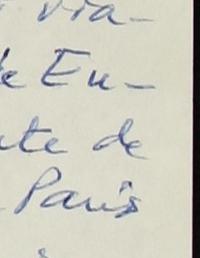 via-
de Eu-
te de
Paris